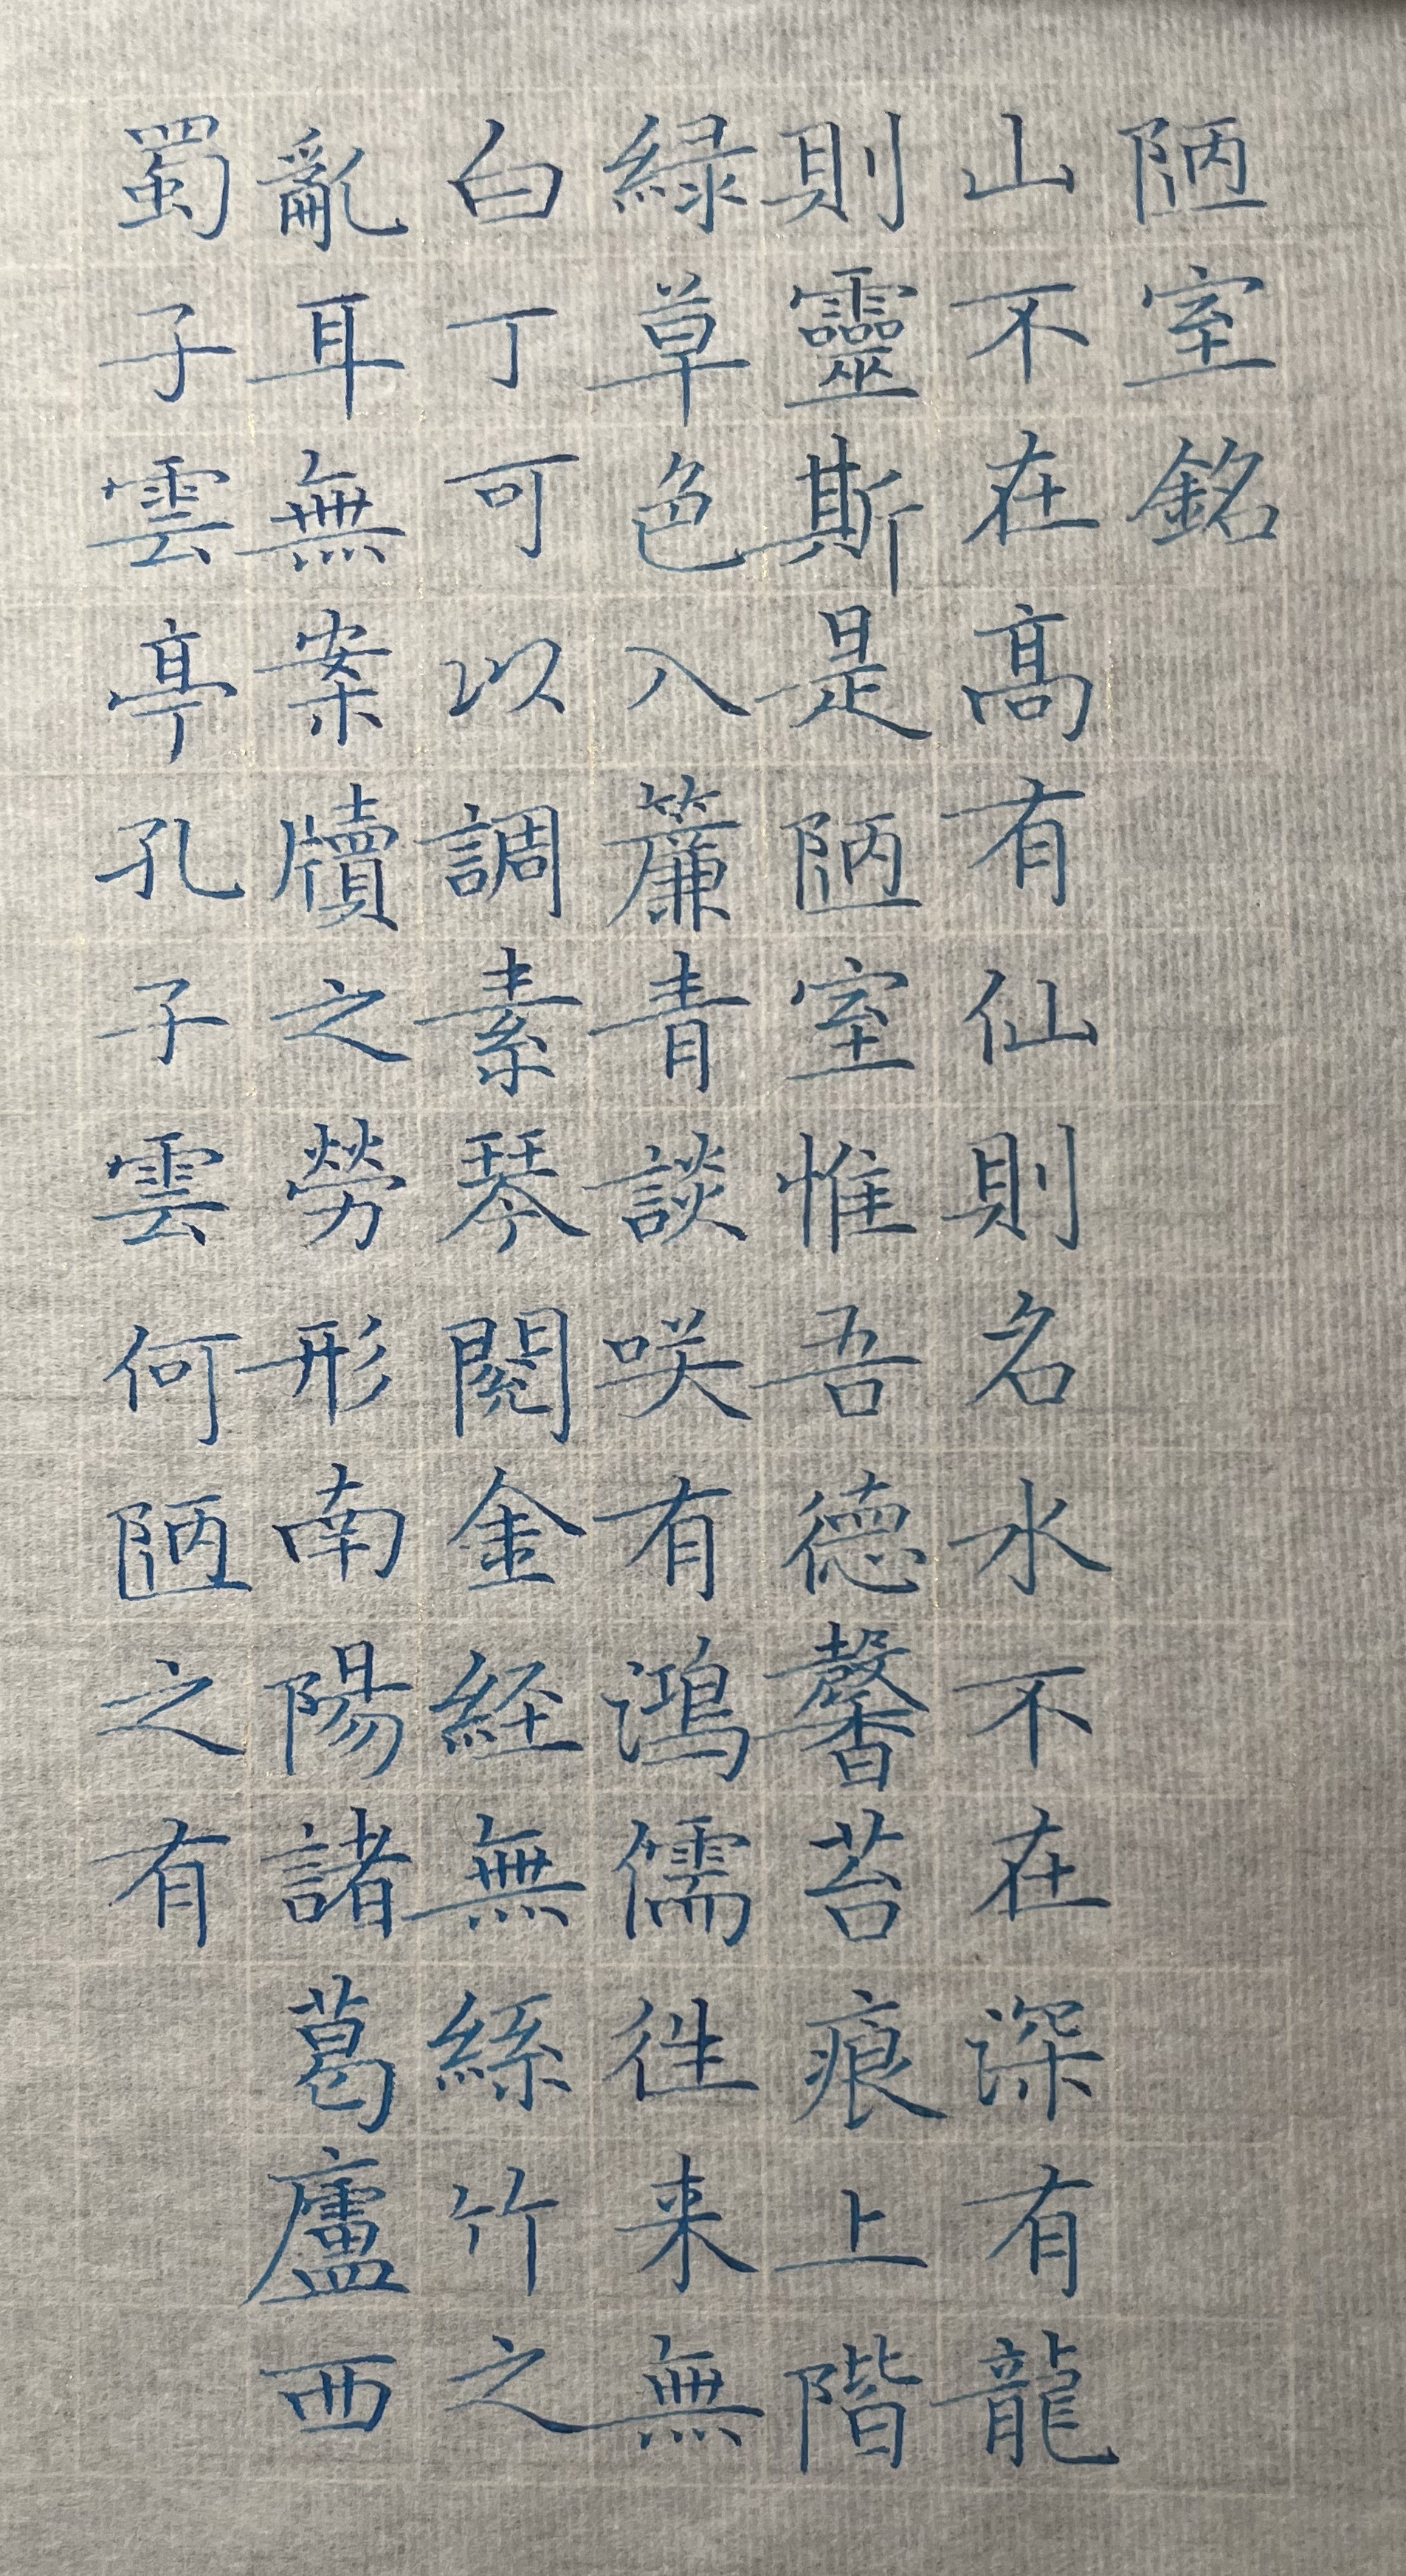 陋室銘
山不在髙有仙則名水不在深有龍
則靈斯是陋室惟吾德馨苔痕上階
緑草色入簾青談咲有鴻儒徃来無
白丁可以調素琴閲金経無絲竹之
亂耳無案牘之勞形南陽諸葛廬西
蜀子雲亭孔子雲何陋之有